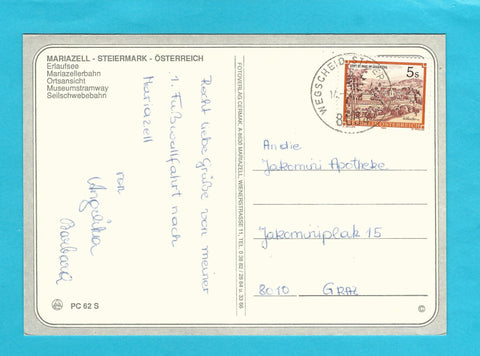 MARIAZELL - STEIERMARK - ÖSTERREICH
Erlaufsee
Mariazellerbahn
Ortsansicht
Museumstramway
Seilschwebebahn
Recht liebe Grüße von meiner
1. Fußwallfahrt nach
Mariazell
von
Angelika
Barbara
PC 62 S
FOTOVERLAG GERMANI, A 8630 MARIAZELL, WIENERSTRASSE 11, TEL.
WEGSCHEID
5 S
An die
Jakomini Apotheke
Jakominiplatz 15
8010 GRAZ
©